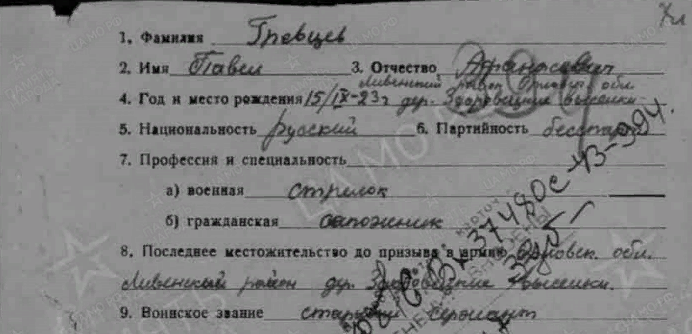 1. Фамилия Гревцев
2. Имя Павел 3. Отчество Афанасович
Ливенский район Орловск. обл.
4. Год и место рождения 15/IX-23г дер. Здоровецкие выселки
5. Национальность русский 6. Партийность беспарт.
7. Профессия и специальность
а) военная стрелок
б) гражданская сапожник
8. Последнее местожительство до призыва в армию Орловск. обл.
Ливенский район дер. Здоровецкие выселки.
9. Воинское звание старший сержант